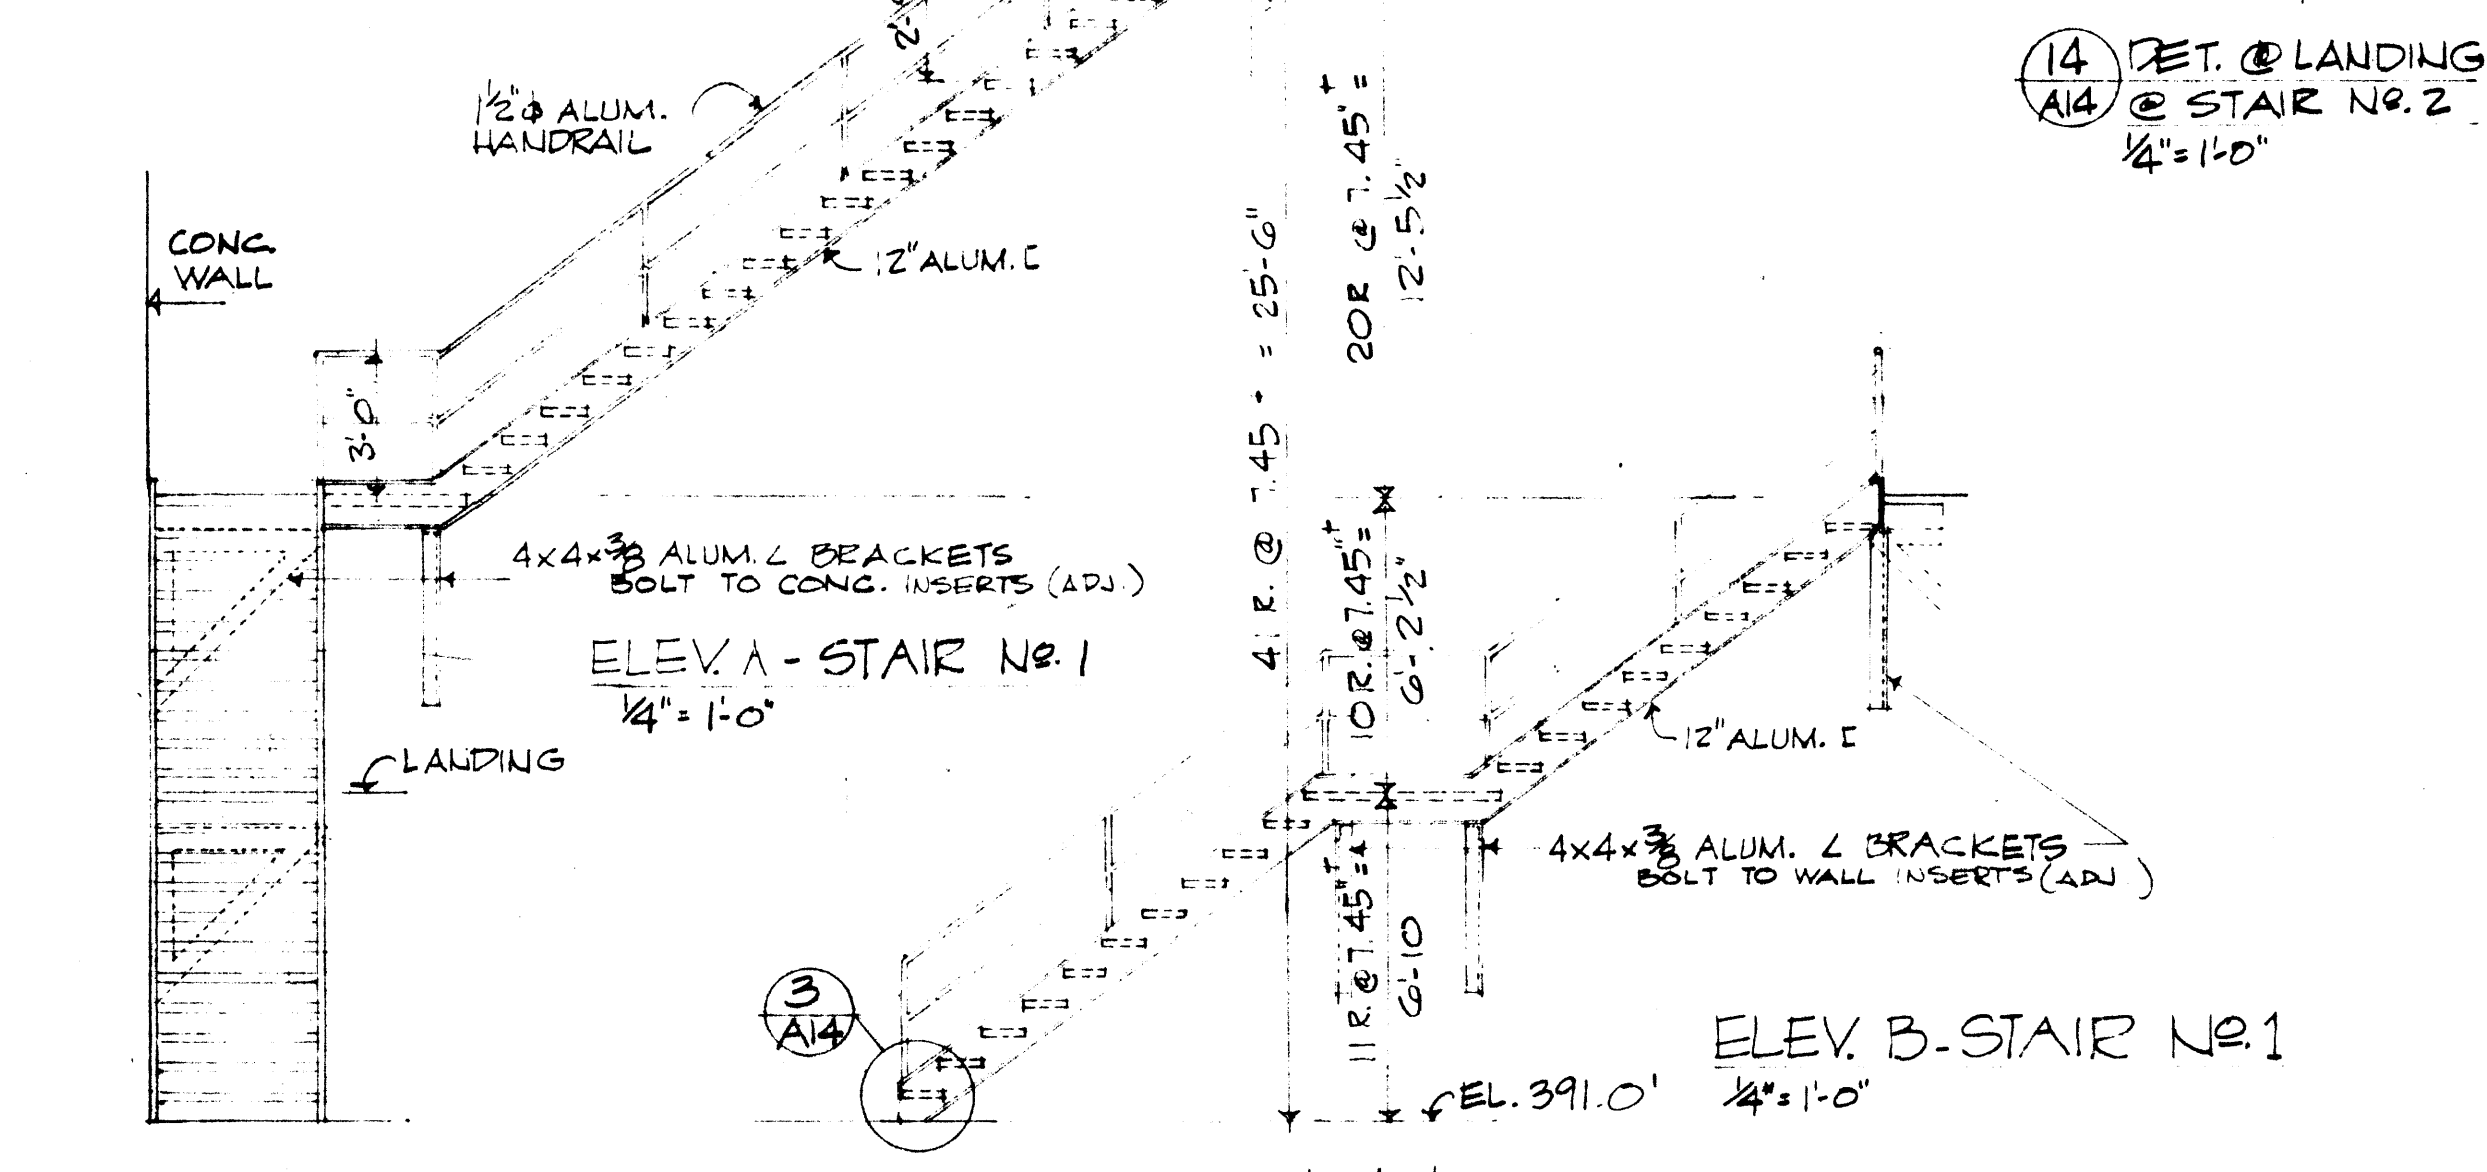 14
A14
DET. @ LANDING
@ STAIR Nº. 2
1/4" = 1'-0"
1 1/2" ϕ ALUM.
HANDRAIL
CONC.
WALL
12" ALUM. [
3'-0"
4x4x3/8 ALUM. ∠ BRACKETS
BOLT TO CONC. INSERTS (ADJ.)
ELEV. A - STAIR Nº. 1
1/4" = 1'-0"
LANDING
41 R. @ 7.45" = 25'-6"
20R @ 7.45"+ =
12'-5 1/2"
10 R. @ 7.45"+ =
6'-2 1/2"
11 R. @ 7.45"+ =
6'-10
12" ALUM. [
4x4x3/8 ALUM. ∠ BRACKETS
BOLT TO WALL INSERTS (ADJ.)
3
A14
ELEV. B - STAIR Nº. 1
1/4" = 1'-0"
EL. 391.0'